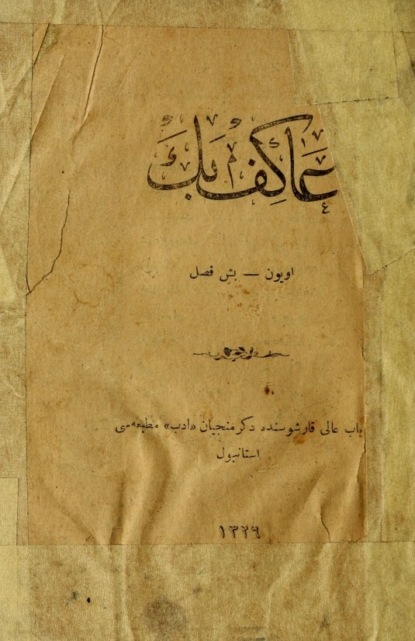 عاكف بك
اويون — بش فصل
باب عالى قارشوسنده دكرمنجيان «ادب» مطبعه‌سى
استانبول
١٣٢٦